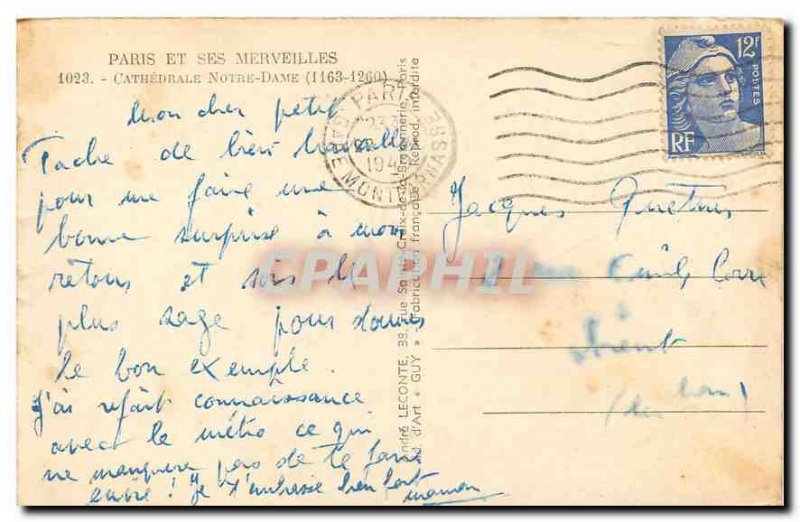 PARIS ET SES MERVEILLES
1023. - CATHÉDRALE NOTRE-DAME (1163-1260)
Mon cher petit
Tache de bien travailler
pour me faire une
bonne surprise à mon
retour et sois le
plus sage pour donner
le bon exemple.
J'ai refait connaissance
avec le métro ce qui
ne manquera pas de te faire
envie ! Je t'embrasse bien fort
maman
André LECONTE, 38, rue Sainte-Croix-de-la-Bretonnerie, Paris
Éd. d'Art « GUY » - Fabrication française - Reprod. interdite
PARIS
GARE MONTPARNASSE
12F
POSTES
RF
Jacques
Lorient
CPAPHIL